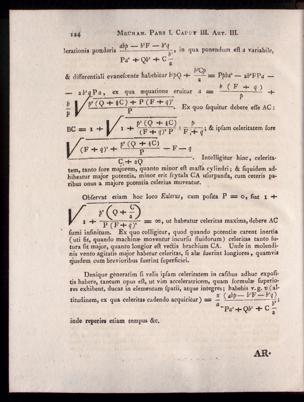 124 MECHAN. PARS I. CAPUT III. ART. III.
lerationis ponderis (abp − b²F − b²q) / (Pa² + Qb² + C b²/2), in qua ponendum est a variabile,
& differentiali evanescente habebitur
ex qua æquatione eruitur a =
. Ex quo sequitur debere esse AC:
BC = 1 + ; & ipsam celeritatem fore
. Intelligitur hinc, celerita-
tem, tanto fore majorem, quanto minor est massa cylindri; & siquidem ad-
hibeatur major potentia, minor erit scytala CA usurpanda, cum ceteris pa-
ribus onus a majore potentia celerius moveatur.
Observat etiam hoc loco Eulerus, cum posita P = 0, fiat 1 +
1 + = ∞, ut habeatur celeritas maxima, debere AC
sumi infinitum. Ex quo colligitur, quod quando potentiæ carent inertia
(uti fit, quando machinæ moventur incursu fluidorum) celeritas tanto fu-
tura sit major, quanto longior sit vectis brachium CA. Unde in molendi-
nis vento agitatis major habetur celeritas, si alæ fuerint longiores, quamvis
ejusdem cum brevioribus fuerint superficiei.
Denique generatim si velis ipsam celeritatem in casibus adhuc exposi-
tis habere, tantum opus est, ut vim acceleratricem, quam formulæ superio-
res exhibent, ducas in elementum spatii, atque integres; habebis v. g. v (al-
titudinem, ex qua celeritas cadendo acquiritur) =
inde reperies etiam tempus &c.
AR-